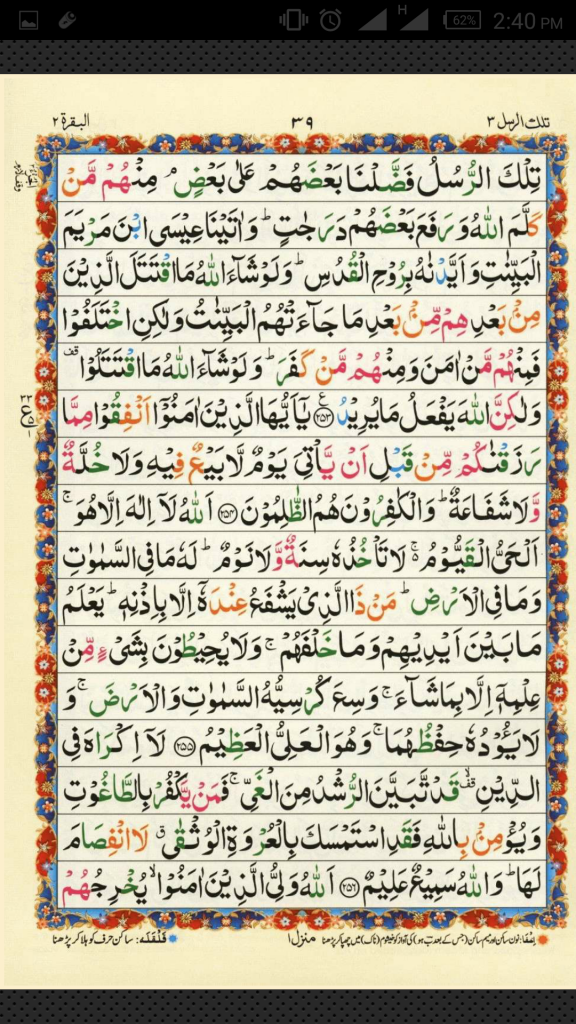 H 62% 2:40 PM
تلك الرسل ٣ ٣٩ البقرة ٢
تِلْكَ الرُّسُلُ فَضَّلْنَا بَعْضَهُمْ عَلٰى بَعْضٍ ۘ مِنْهُمْ مَّنْ
كَلَّمَ اللّٰهُ وَرَفَعَ بَعْضَهُمْ دَرَجٰتٍ ؕ وَاٰتَيْنَا عِيْسَى ابْنَ مَرْيَمَ
الْبَيِّنٰتِ وَاَيَّدْنٰهُ بِرُوْحِ الْقُدُسِ ؕ وَلَوْ شَآءَ اللّٰهُ مَا اقْتَتَلَ الَّذِيْنَ
مِنْۢ بَعْدِهِمْ مِّنْۢ بَعْدِ مَا جَآءَتْهُمُ الْبَيِّنٰتُ وَلٰكِنِ اخْتَلَفُوْا
فَمِنْهُمْ مَّنْ اٰمَنَ وَمِنْهُمْ مَّنْ كَفَرَ ؕ وَلَوْ شَآءَ اللّٰهُ مَا اقْتَتَلُوْا قف
وَلٰكِنَّ اللّٰهَ يَفْعَلُ مَا يُرِيْدُ ﴿۲۵۳﴾ ع يٰۤاَيُّهَا الَّذِيْنَ اٰمَنُوْۤا اَنْفِقُوْا مِمَّا
رَزَقْنٰكُمْ مِّنْ قَبْلِ اَنْ يَّاْتِيَ يَوْمٌ لَّا بَيْعٌ فِيْهِ وَلَا خُلَّةٌ
وَّلَا شَفَاعَةٌ ؕ وَالْكٰفِرُوْنَ هُمُ الظّٰلِمُوْنَ ﴿۲۵۴﴾ اَللّٰهُ لَاۤ اِلٰهَ اِلَّا هُوَ ۚ
اَلْحَيُّ الْقَيُّوْمُ ۚ لَا تَاْخُذُهٗ سِنَةٌ وَّلَا نَوْمٌ ؕ لَهٗ مَا فِي السَّمٰوٰتِ
وَمَا فِي الْاَرْضِ ؕ مَنْ ذَا الَّذِيْ يَشْفَعُ عِنْدَهٗۤ اِلَّا بِاِذْنِهٖ ؕ يَعْلَمُ
مَا بَيْنَ اَيْدِيْهِمْ وَمَا خَلْفَهُمْ ۚ وَلَا يُحِيْطُوْنَ بِشَيْءٍ مِّنْ
عِلْمِهٖۤ اِلَّا بِمَا شَآءَ ۚ وَسِعَ كُرْسِيُّهُ السَّمٰوٰتِ وَالْاَرْضَ ۚ وَ
لَا يَـُٔوْدُهٗ حِفْظُهُمَا ۚ وَهُوَ الْعَلِيُّ الْعَظِيْمُ ﴿۲۵۵﴾ لَاۤ اِكْرَاهَ فِي
الدِّيْنِ ۙ قف قَدْ تَّبَيَّنَ الرُّشْدُ مِنَ الْغَيِّ ۚ فَمَنْ يَّكْفُرْ بِالطَّاغُوْتِ
وَيُؤْمِنْۢ بِاللّٰهِ فَقَدِ اسْتَمْسَكَ بِالْعُرْوَةِ الْوُثْقٰى ۗ لَا انْفِصَامَ
لَهَا ؕ وَاللّٰهُ سَمِيْعٌ عَلِيْمٌ ﴿۲۵۶﴾ اَللّٰهُ وَلِيُّ الَّذِيْنَ اٰمَنُوْا ۙ يُخْرِجُهُمْ
اِخفا: نون ساکن اور میم ساکن (جس کے بعد ب ہو) کی آواز کو خیشوم (ناک) میں چھپا کر پڑھنا منزل ۱ قَلْقَلَه: ساکن حرف کو ہلا کر پڑھنا